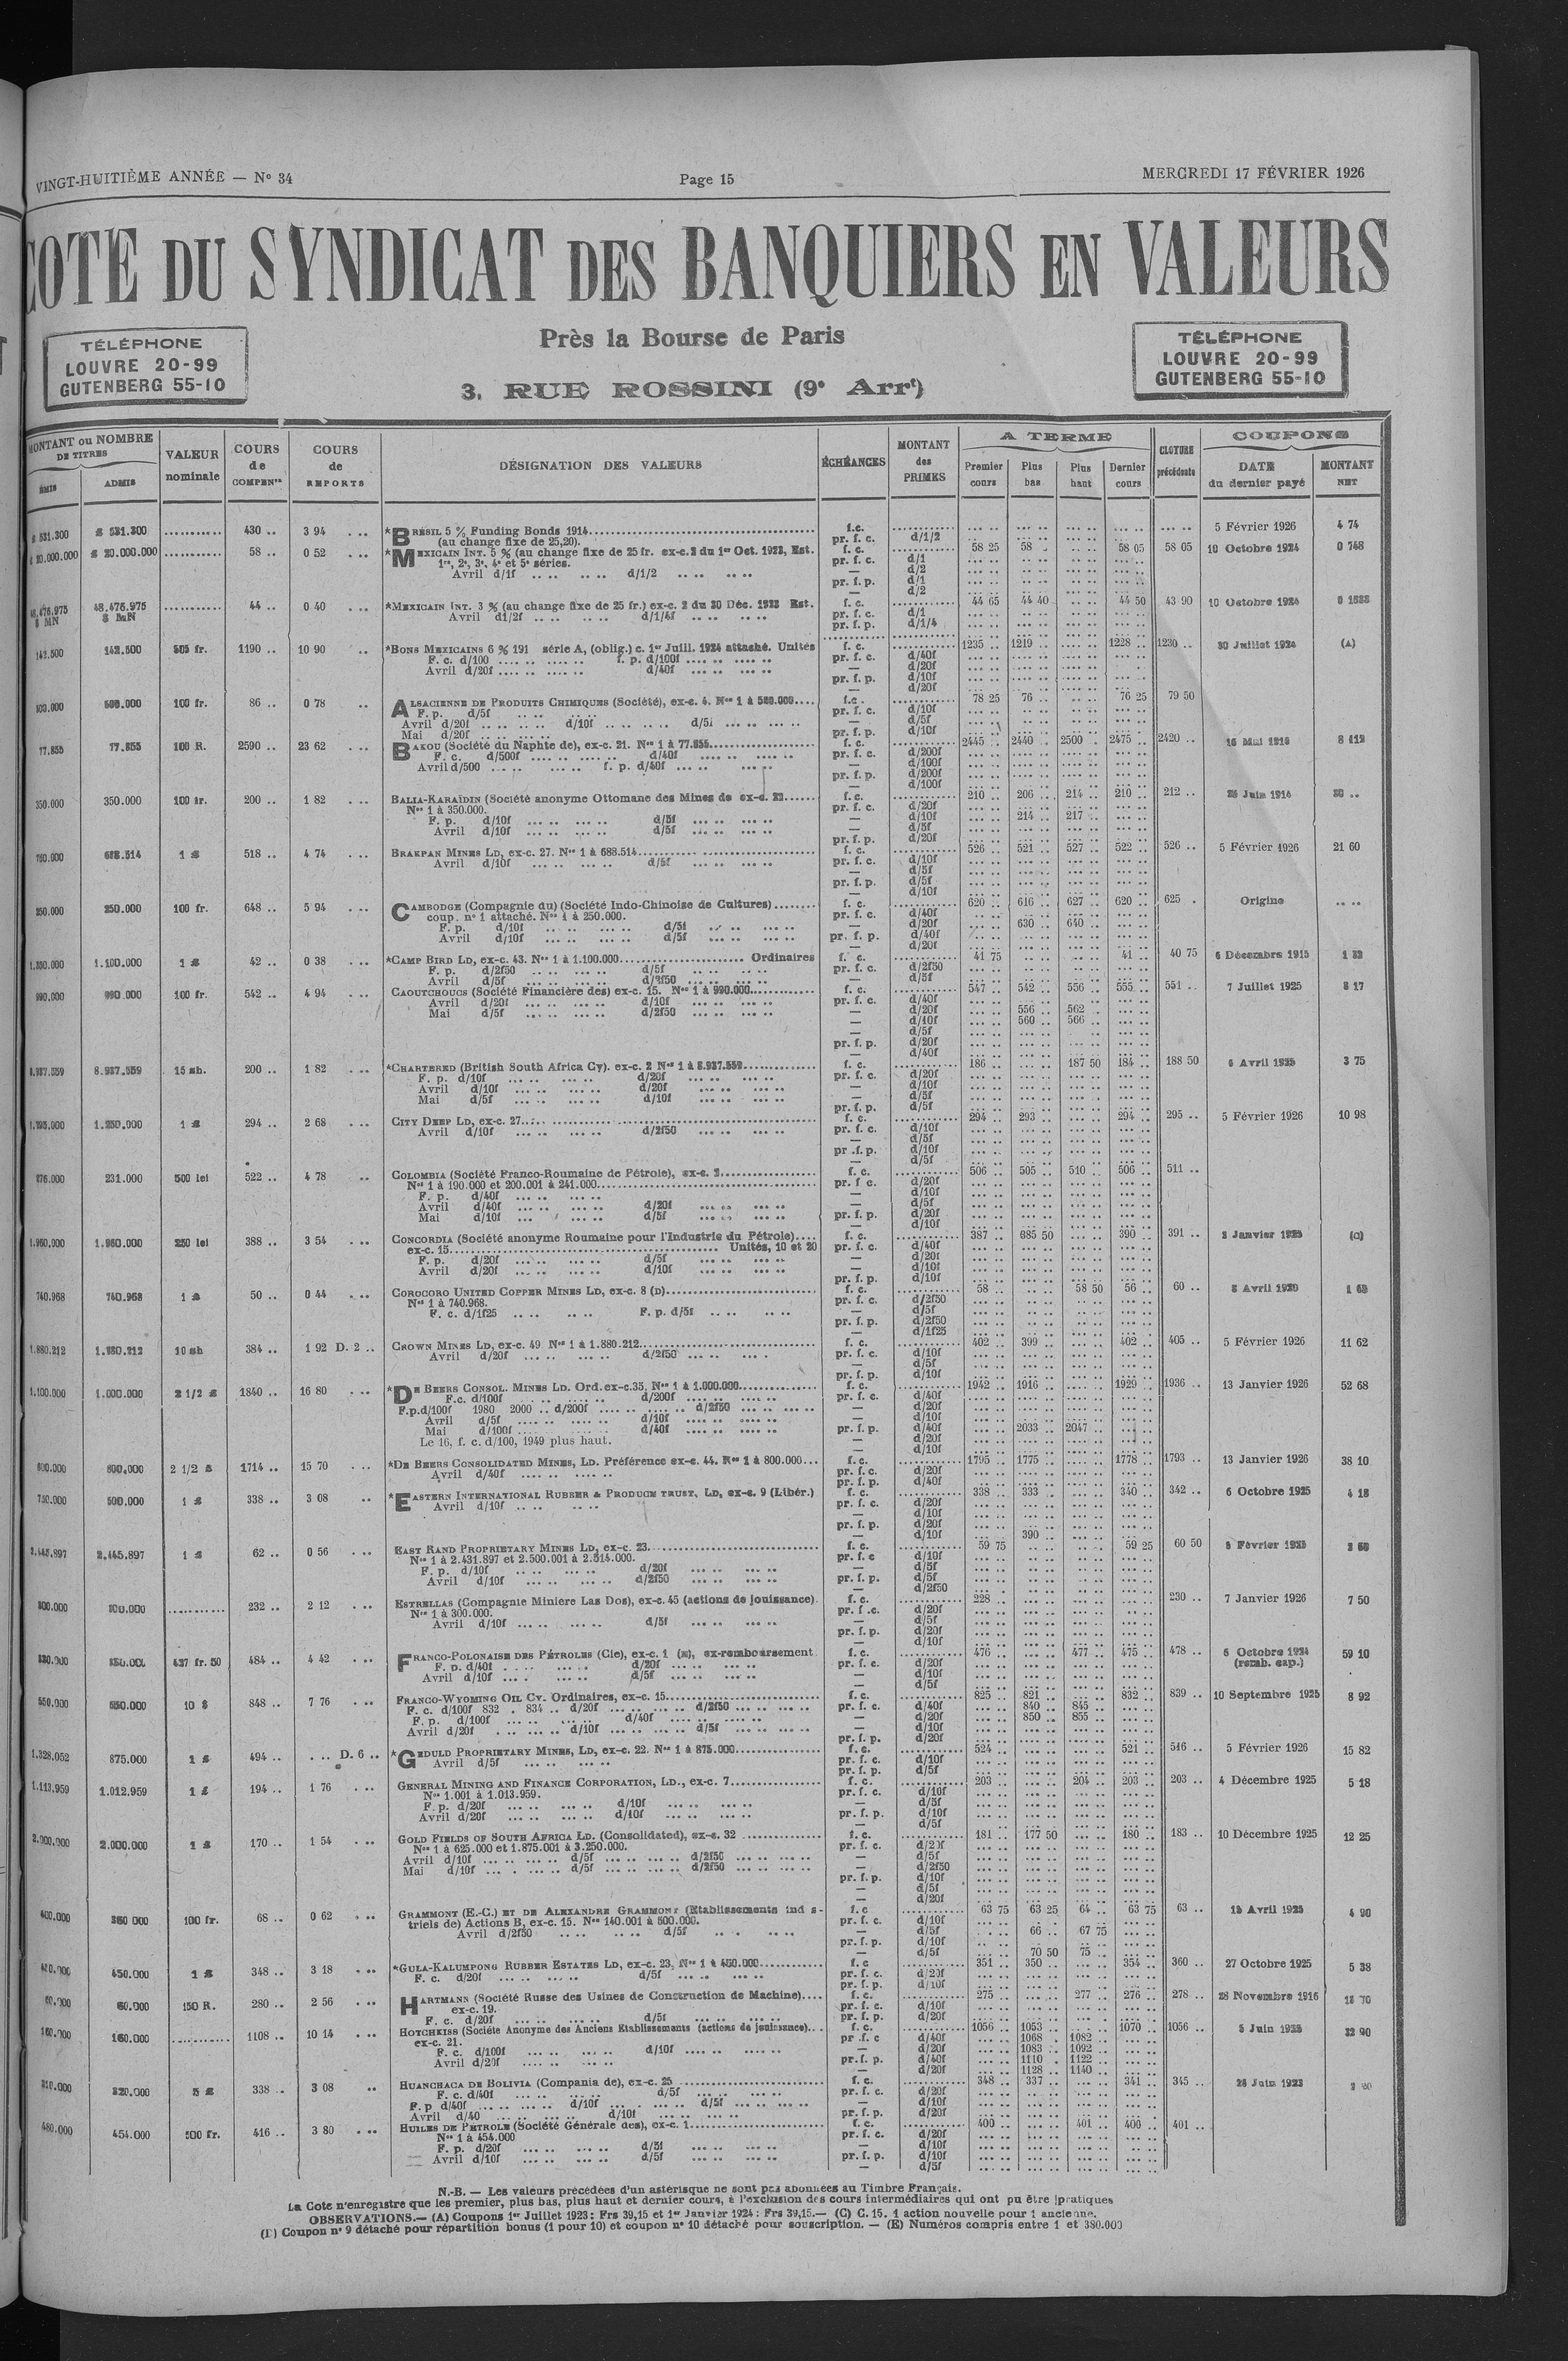 VINGT-HUITIÈME ANNÉE — N° 34 Page 15 MERCREDI 17 FÉVRIER 1926
COTE DU SYNDICAT DES BANQUIERS EN VALEURS
Près la Bourse de Paris
3, RUE ROSSINI (9e Arrt)
TÉLÉPHONE
LOUVRE 20-99
GUTENBERG 55-10
TÉLÉPHONE
LOUVRE 20-99
GUTENBERG 55-10
MONTANT ou NOMBRE DE TITRES ÉMIS ADMIS
VALEUR nominale
COURS de COMPENon
COURS de REPORTS
DÉSIGNATION DES VALEURS
ÉCHÉANCES
MONTANT des PRIMES
A TERME Premier cours Plus bas Plus haut Dernier cours
CLOTURE précédente
COUPONS DATE du dernier payé MONTANT NET
$ 531.300 430 .. 3 94 *BRÉSIL 5 % Funding Bonds 1914 f.c. 5 Février 1926 4 74
(au change fixe de 25,20). pr. f. c. d/1/2
$ 20.000.000 58 .. 0 52 *MEXICAIN INT. 5 % (au change fixe de 25 fr. ex-c. 2 du 1er Oct. 1922, Est. f. c. 58 25 58 . 58 05 58 05 10 Octobre 1924 0 748
1re, 2e, 3e, 4e et 5e séries. pr. f. c. d/1
Avril d/1f d/1/2 — d/2
pr. f. p. d/1
— d/2
48.476.975 $ MN 44 .. 0 40 *MEXICAIN INT. 3 % (au change fixe de 25 fr.) ex-c. 2 du 30 Déc. 1922 Est. f. c. 44 65 44 40 44 50 43 90 10 Octobre 1924
Avril d1/2f d/1/4f pr. f. c. d/1
pr. f. p. d/1/4
142.500 142.500 505 fr. 1190 .. 10 90 *BONS MEXICAINS 6 % 191 série A, (oblig.) c. 1er Juill. 1924 attaché. Unités f. c. 1235 .. 1219 .. 1228 .. 1230 .. 30 Juillet 1924 (A)
F. c. d/100 f. p. d/100f pr. f. c. d/40f
Avril d/20f d/40f — d/20f
pr. f. p. d/10f
— d/20f
100 fr. 86 .. 0 78 ALSACIENNE DE PRODUITS CHIMIQUES (Société), ex-c. 4. Nos 1 à 500.000 f.c. 78 25 76 .. 76 25 79 50
F. p. d/5f pr. f. c. d/10f
Avril d/20f d/10f d/5f — d/5f
Mai d/20f pr. f. p. d/10f
77.855 77.855 100 R. 2590 .. 23 62 BAKOU (Société du Naphte de), ex-c. 21. Nos 1 à 77.855 f. c. 2445 .. 2440 .. 2500 .. 2475 .. 2420 ..
F. c. d/500f d/40f pr. f. c. d/200f
Avril d/500 f. p. d/40f — d/100f
pr. f. p. d/200f
— d/100f
350.000 350.000 100 fr. 200 .. 1 82 BALIA-KARAÏDIN (Société anonyme Ottomane des Mines de ex-c. 22 f. c. 210 .. 206 .. 214 .. 210 .. 212 .. 25 Juin 1914
Nos 1 à 350.000. pr. f. c. d/20f
F. p. d/10f d/5f — d/10f 214 .. 217 ..
Avril d/10f d/5f — d/5f
pr. f. p. d/20f
688.514 1 £ 518 .. 4 74 BRAKPAN MINES LD, ex-c. 27. Nos 1 à 688.514 f. c. 526 .. 521 .. 527 .. 522 .. 526 .. 5 Février 1926 21 60
Avril d/10f d/5f pr. f. c. d/10f
— d/5f
pr. f. p. d/5f
— d/10f
250.000 250.000 100 fr. 648 .. 5 94 CAMBODGE (Compagnie du) (Société Indo-Chinoise de Cultures) f. c. 620 .. 616 .. 627 .. 620 .. 625 . Origine
coup. n° 1 attaché. Nos 1 à 250.000. pr. f. c. d/40f
F. p. d/10f d/5f — d/20f 630 .. 640 ..
Avril d/10f d/5f pr. f. p. d/40f
— d/20f
1.100.000 1 £ 42 .. 0 38 *CAMP BIRD LD, ex-c. 43. Nos 1 à 1.100.000 Ordinaires f. c. 41 75 41 .. 40 75 6 Décembre 1915 1 32
F. p. d/2f50 d/5f pr. f. c. d/2f50
Avril d/5f d/2f50 — d/5f
990.000 990.000 100 fr. 542 .. 4 94 CAOUTCHOUCS (Société Financière des) ex-c. 15. Nos 1 à 990.000 f. c. 547 .. 542 .. 556 .. 555 .. 551 .. 7 Juillet 1925 8 17
Avril d/20f d/10f pr. f. c. d/40f
Mai d/5f d/2f50 — d/20f 556 .. 562 ..
— d/10f 560 .. 566 ..
— d/5f
pr. f. p. d/20f
— d/40f
8.937.559 8.937.559 15 sh. 200 .. 1 82 *CHARTERED (British South Africa Cy). ex-c. 2 Nos 1 à 8.937.559 f. c. 186 .. 187 50 184 .. 188 50 6 Avril 1925 3 75
F. p. d/10f d/20f pr. f. c. d/20f
Avril d/10f d/20f — d/10f
Mai d/5f d/10f — d/5f
pr. f. p. d/5f
1.250.000 1 £ 294 .. 2 68 CITY DEEP LD, ex-c. 27 f. c. 294 .. 293 .. 294 .. 295 .. 5 Février 1926 10 98
Avril d/10f d/2f50 pr. f. c. d/10f
— d/5f
pr .f. p. d/10f
— d/5f
231.000 500 lei 522 .. 4 78 COLOMBIA (Société Franco-Roumaine de Pétrole), ex-c. 2 f. c. 506 .. 505 .. 510 .. 506 .. 511 ..
Nos 1 à 190.000 et 200.001 à 241.000 pr. f c. d/20f
F. p. d/40f — d/10f
Avril d/40f d/20f — d/5f
Mai d/10f d/5f pr. f. p. d/20f
— d/10f
1.960.000 1.960.000 250 lei 388 .. 3 54 CONCORDIA (Société anonyme Roumaine pour l'Industrie du Pétrole) f. c. 387 .. 685 50 390 .. 391 .. 2 Janvier 1925 (C)
ex-c. 15 Unités, 10 et 20 pr. f. c. d/40f
F. p. d/20f d/5f — d/20f
Avril d/20f d/10f — d/10f
pr. f. p. d/10f
740.968 740.968 1 £ 50 .. 0 44 COROCORO UNITED COPPER MINES LD, ex-c. 8 (D) f. c. 58 .. 58 50 56 .. 60 .. 8 Avril 1920
Nos 1 à 740.968. pr. f. c. d/2f50
F. c. d/1f25 F. p. d/5f — d/5f
pr. f. p. d/2f50
— d/1f25
1.880.212 1.880.212 10 sh 384 .. 1 92 D. 2 .. CROWN MINES LD, ex-c. 49 Nos 1 à 1.880.212 f. c. 402 .. 399 .. 402 .. 405 .. 5 Février 1926 11 62
Avril d/20f d/2f50 pr. f. c. d/10f
— d/5f
pr. f. p. d/10f
1.100.000 1.000.000 2 1/2 £ 1840 .. 16 80 *DE BEERS CONSOL. MINES LD. Ord. ex-c.35, Nos 1 à 1.000.000 f. c. 1942 .. 1916 .. 1929 .. 1936 .. 13 Janvier 1926 52 68
F.c. d/100f d/200f pr. f. c. d/40f
F.p.d/100f 1980 2000 .. d/200f d/2f50 — d/20f
Avril d/5f d/10f — d/10f
Mai d/100f d/40f pr. f. p. d/40f 2033 .. 2047 ..
Le 16, f. c. d/100, 1949 plus haut. — d/20f
— d/10f
800.000 800.000 2 1/2 £ 1714 .. 15 70 *DE BEERS CONSOLIDATED MINES, LD. Préférence ex-c. 44. Nos 1 à 800.000 f. c. 1795 .. 1775 .. 1778 .. 1793 .. 13 Janvier 1926 38 10
Avril d/40f pr. f. c. d/20f
pr. f. p. d/40f
750.000 500.000 1 £ 338 .. 3 08 *EASTERN INTERNATIONAL RUBBER & PRODUCE TRUST, LD, ex-c. 9 (Libér.) f. c. 338 .. 333 .. 340 .. 342 .. 6 Octobre 1925 4 18
Avril d/10f pr. f. c. d/20f
— d/10f
pr. f. p. d/20f
— d/10f 390 ..
2.445.897 2.445.897 1 £ 62 .. 0 56 EAST RAND PROPRIETARY MINES LD, ex-c. 23 f. c. 59 75 59 25 60 50
Nos 1 à 2.431.897 et 2.500.001 à 2.514.000. pr. f. c d/10f
F. p. d/10f d/20f — d/5f
Avril d/10f d/2f50 pr. f. p. d/5f
— d/2f50
300.000 300.000 232 .. 2 12 ESTRELLAS (Compagnie Miniere Las Dos), ex-c. 45 (actions de jouissance). f. c. 228 .. 230 .. 7 Janvier 1926 7 50
Nos 1 à 300.000. pr. f .c. d/20f
Avril d/10f d/5f — d/5f
pr. f. p. d/20f
— d/10f
437 fr. 50 484 .. 4 42 FRANCO-POLONAISE DES PÉTROLES (Cie), ex-c. 1 (E), ex-remboursement f. c. 476 .. 477 .. 475 .. 478 .. 6 Octobre 1924 59 10
F. p. d/40f d/20f pr. f. c. d/20f (remb. cap.)
Avril d/10f d/5f — d/10f
— d/5f
550.000 550.000 10 $ 848 .. 7 76 FRANCO-WYOMING OIL CY. Ordinaires, ex-c. 15 f. c. 825 .. 821 .. 832 .. 839 .. 10 Septembre 1925 8 92
F. c. d/100f 832 . 834 .. d/20f d/2f50 pr. f. c. d/40f 840 .. 845 ..
F. p. d/100f d/40f — d/20f 850 .. 855 ..
Avril d/20f d/10f d/5f — d/10f
pr. f. p. d/20f
1.328.052 875.000 1 £ 494 .. D. 6 .. *GEDULD PROPRIETARY MINES, LD, ex-c. 22. Nos 1 à 875.000 f. c. 524 .. 521 .. 546 .. 5 Février 1926 15 82
Avril d/5f pr. f. c. d/10f
pr. f. p. d/5f
1.113.959 1.012.959 1 £ 194 .. 1 76 GENERAL MINING AND FINANCE CORPORATION, LD., ex-c. 7 f. c. 203 .. 204 .. 203 .. 203 .. 4 Décembre 1925 5 18
Nos 1.001 à 1.013.959. pr. f. c. d/10f
F. p. d/20f d/10f — d/5f
Avril d/20f d/10f pr. f. p. d/10f
— d/5f
2.000.000 2.000.000 1 £ 170 .. 1 54 GOLD FIELDS OF SOUTH AFRICA LD. (Consolidated), ex-c. 32 f. c. 181 .. 177 50 180 .. 183 .. 10 Décembre 1925 12 25
Nos 1 à 625.000 et 1.875.001 à 3.250.000. pr. f. c. d/20f
Avril d/10f d/5f d/2f50 — d/5f
Mai d/10f d/5f d/2f50 — d/2f50
pr. f. p. d/10f
— d/5f
— d/20f
400.000 360 000 100 fr. 68 .. 0 62 GRAMMONT (E.-C.) ET DE ALEXANDRE GRAMMONT (Etablissements ind s- f. c 63 75 63 25 64 .. 63 75 63 .. 15 Avril 1925 4 90
triels de) Actions B, ex-c. 15. Nos 140.001 à 500.000. pr. f. c. d/10f
Avril d/2f50 d/5f — d/5f 66 .. 67 75
pr. f. p. d/10f
— d/5f 70 50 75 ..
450.000 1 £ 348 .. 3 18 *GULA-KALUMPONG RUBBER ESTATES LD, ex-c. 23, Nos 1 à 450.000 f. c 351 .. 350 .. 354 .. 360 .. 27 Octobre 1925 5 38
F. c. d/20f d/5f pr. f. c. d/20f
pr. f. p. d/10f
60.000 60.000 150 R. 280 .. 2 56 HARTMANN (Société Russe des Usines de Construction de Machine) f. c. 275 .. 277 .. 276 .. 278 .. 28 Novembre 1916
ex-c. 19. pr. f. c. d/10f
F. c. d/20f d/5f pr. f. p. d/20f
160.000 160.000 1108 .. 10 14 HOTCHKISS (Société Anonyme des Anciens Etablissements (actions de jouissance) f. c. 1056 .. 1053 .. 1070 .. 1056 .. 5 Juin 1925 32 90
ex-c. 21. pr .f. c d/40f 1068 . 1082 ..
F. c. d/100f d/10f — d/20f 1083 .. 1092 ..
Avril d/20f pr. f. p. d/40f 1110 . 1122 ..
— d/20f 1128 .. 1140 ..
320.000 5 £ 338 .. 3 08 HUANCHACA DE BOLIVIA (Compania de), ex-c. 25 f. c. 348 .. 337 .. 341 .. 345 ..
F. c. d/40f d/5f pr. f. c. d/20f
F. p d/40f d/10f d/5f — d/10f
Avril d/40 d/10f pr. f. p. d/20f
480.000 454.000 500 fr. 416 .. 3 80 HUILES DE PÉTROLE (Société Générale des), ex-c. 1 f. c. 400 .. 401 .. 400 .. 401 ..
Nos 1 à 454.000 pr. f. c. d/20f
F. p. d/20f d/5f — d/10f
Avril d/10f d/5f pr. f. p. d/10f
— d/5f
N.-B. — Les valeurs précédées d'un astérisque ne sont pas abonnées au Timbre Français.
La Cote n'enregistre que les premier, plus bas, plus haut et dernier cours, à l'exclusion des cours intermédiaires qui ont pu être pratiques
OBSERVATIONS.— (A) Coupons 1er Juillet 1923 : Frs 39,15 et 1er Janvier 1924 : Frs 39,15.— (C) C. 15. 1 action nouvelle pour 1 ancienne.
(D) Coupon n° 9 détaché pour répartition bonus (1 pour 10) et coupon n° 10 détaché pour souscription. — (E) Numéros compris entre 1 et 380.000